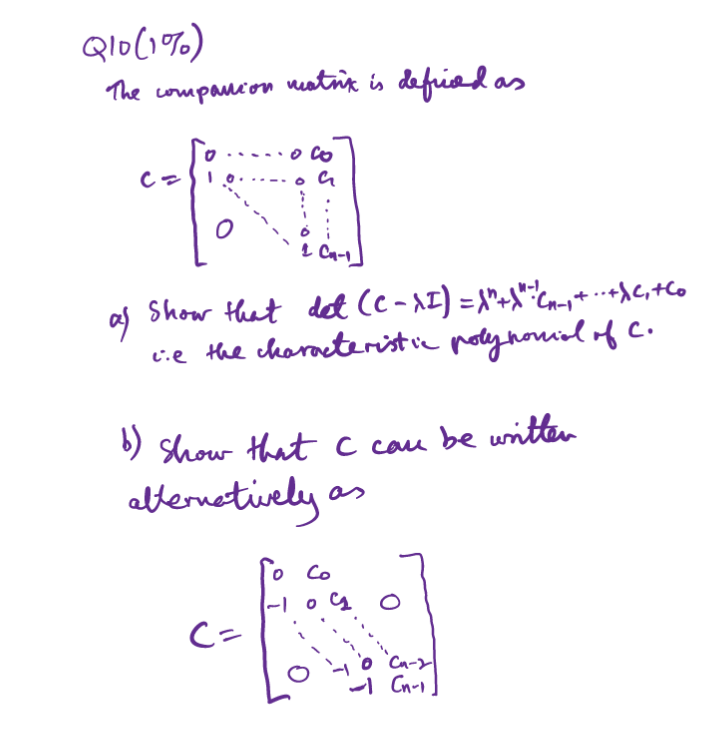 Q10(1%)
The companion matrix is defined as
C = [ 0 ...... 0 C0
1 0 ...... 0 C1
0
0
1 Cn-1 ]
a) Show that det (C - λI) = λⁿ + λⁿ⁻¹Cn-1 + ... + λC1 + C0
i.e the characteristic polynomial of C.
b) Show that C can be written
alternatively as
C = [ 0 C0
-1 0 C1 0
0 -1 0 Cn-2
-1 Cn-1 ]